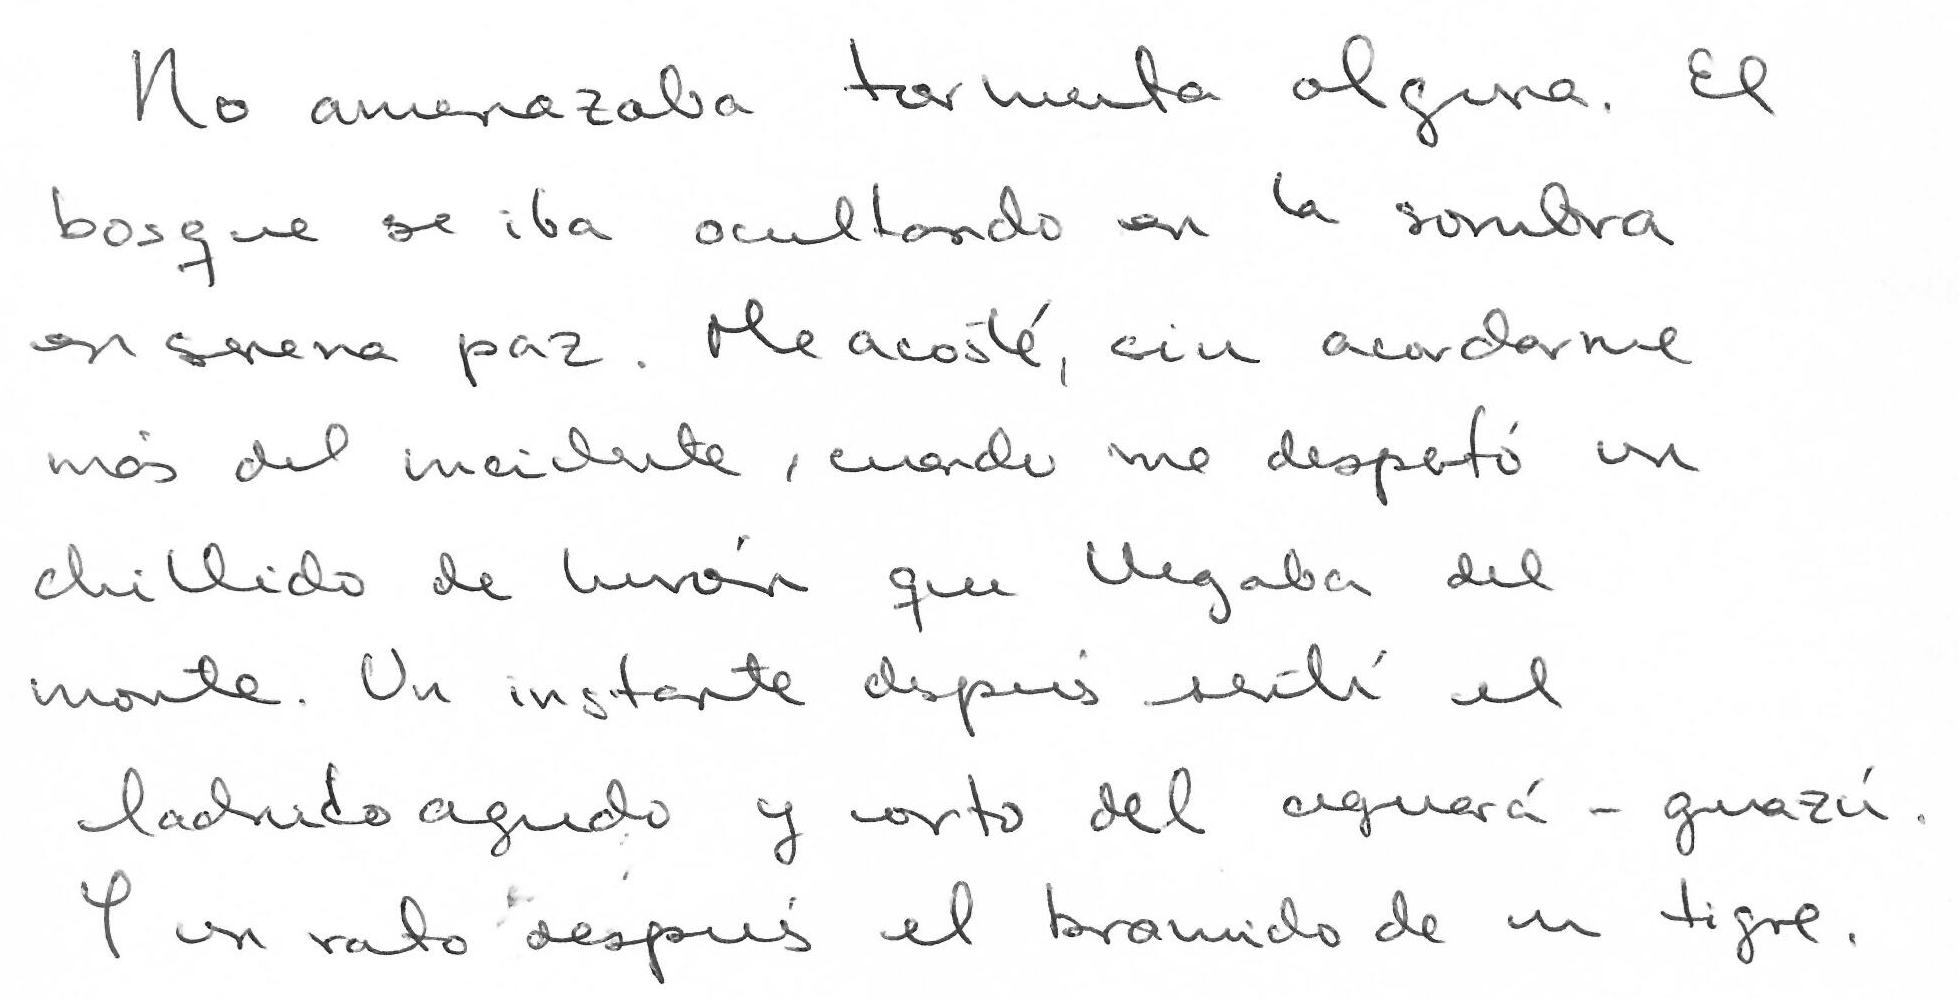 No amenazaba tormenta alguna. El
bosque se iba ocultando en la sombra
en serena paz. Me acosté, sin acordarme
más del incidente, cuando me despertó un
chillido de hurón que llegaba del
monte. Un instante después sentí el
ladrido agudo y corto del aguará-guazú.
Y un rato después el bramido de un tigre.